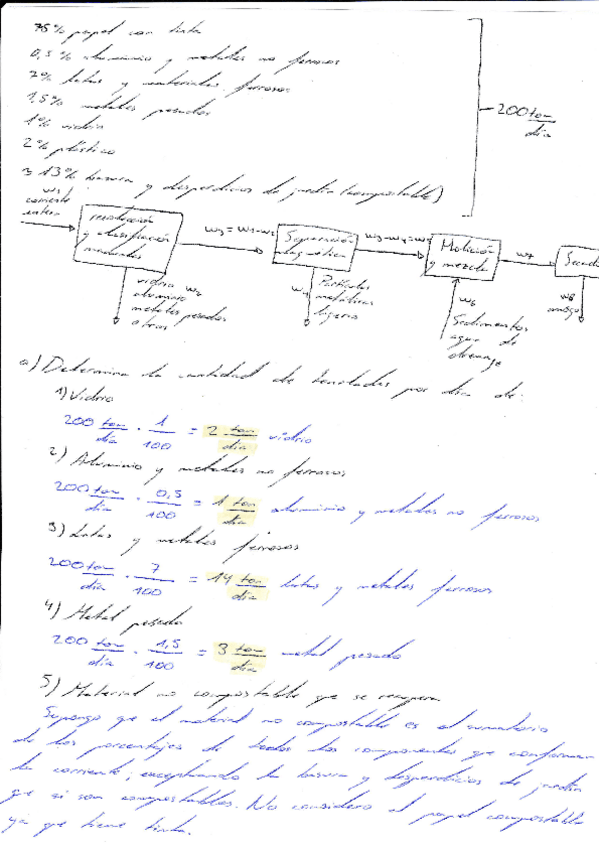 75% papel con tinta
0,5% aluminio y metales no ferrosos
7% latas y materiales ferrosos
1,5% metales pesados
1% vidrio
2% plástico
13% basura y desperdicios de jardín (compostable)
200 ton/día
w1
corriente
entera
recolección
y clasificación
manuales
w3 = w1-w2
Separación
magnética
w3-w4=w5
Molición
y mezcla
w7
w2
vidrio
aluminio
metales pesados
otros
w4
Partículas
metálicas
ligeras
w6
Sedimentos
agua de
drenaje
w8
a) Determina la cantidad de toneladas por día de:
1) Vidrio
200 ton/día · 1/100 = 2 ton/día vidrio
2) Aluminio y metales no ferrosos
200 ton/día · 0,5/100 = 1 ton/día aluminio y metales no ferrosos
3) Latas y metales ferrosos
200 ton/día · 7/100 = 14 ton/día latas y metales ferrosos
4) Metal pesado
200 ton/día · 1,5/100 = 3 ton/día metal pesado
5) Material no compostable que se recupera
Supongo que el material no compostable es el sumatorio
de los porcentajes de todos los componentes que conforman
la corriente, exceptuando la basura y desperdicios de jardín
que si son compostables. No considero el papel compostable
ya que tiene tinta.